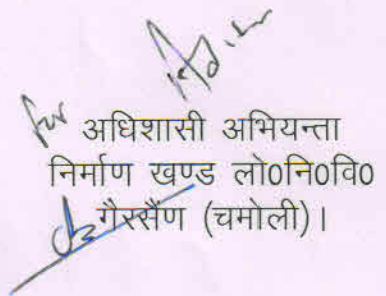 for
अधिशासी अभियन्ता
निर्माण खण्ड लो0नि0वि0
गैरसैंण (चमोली)।